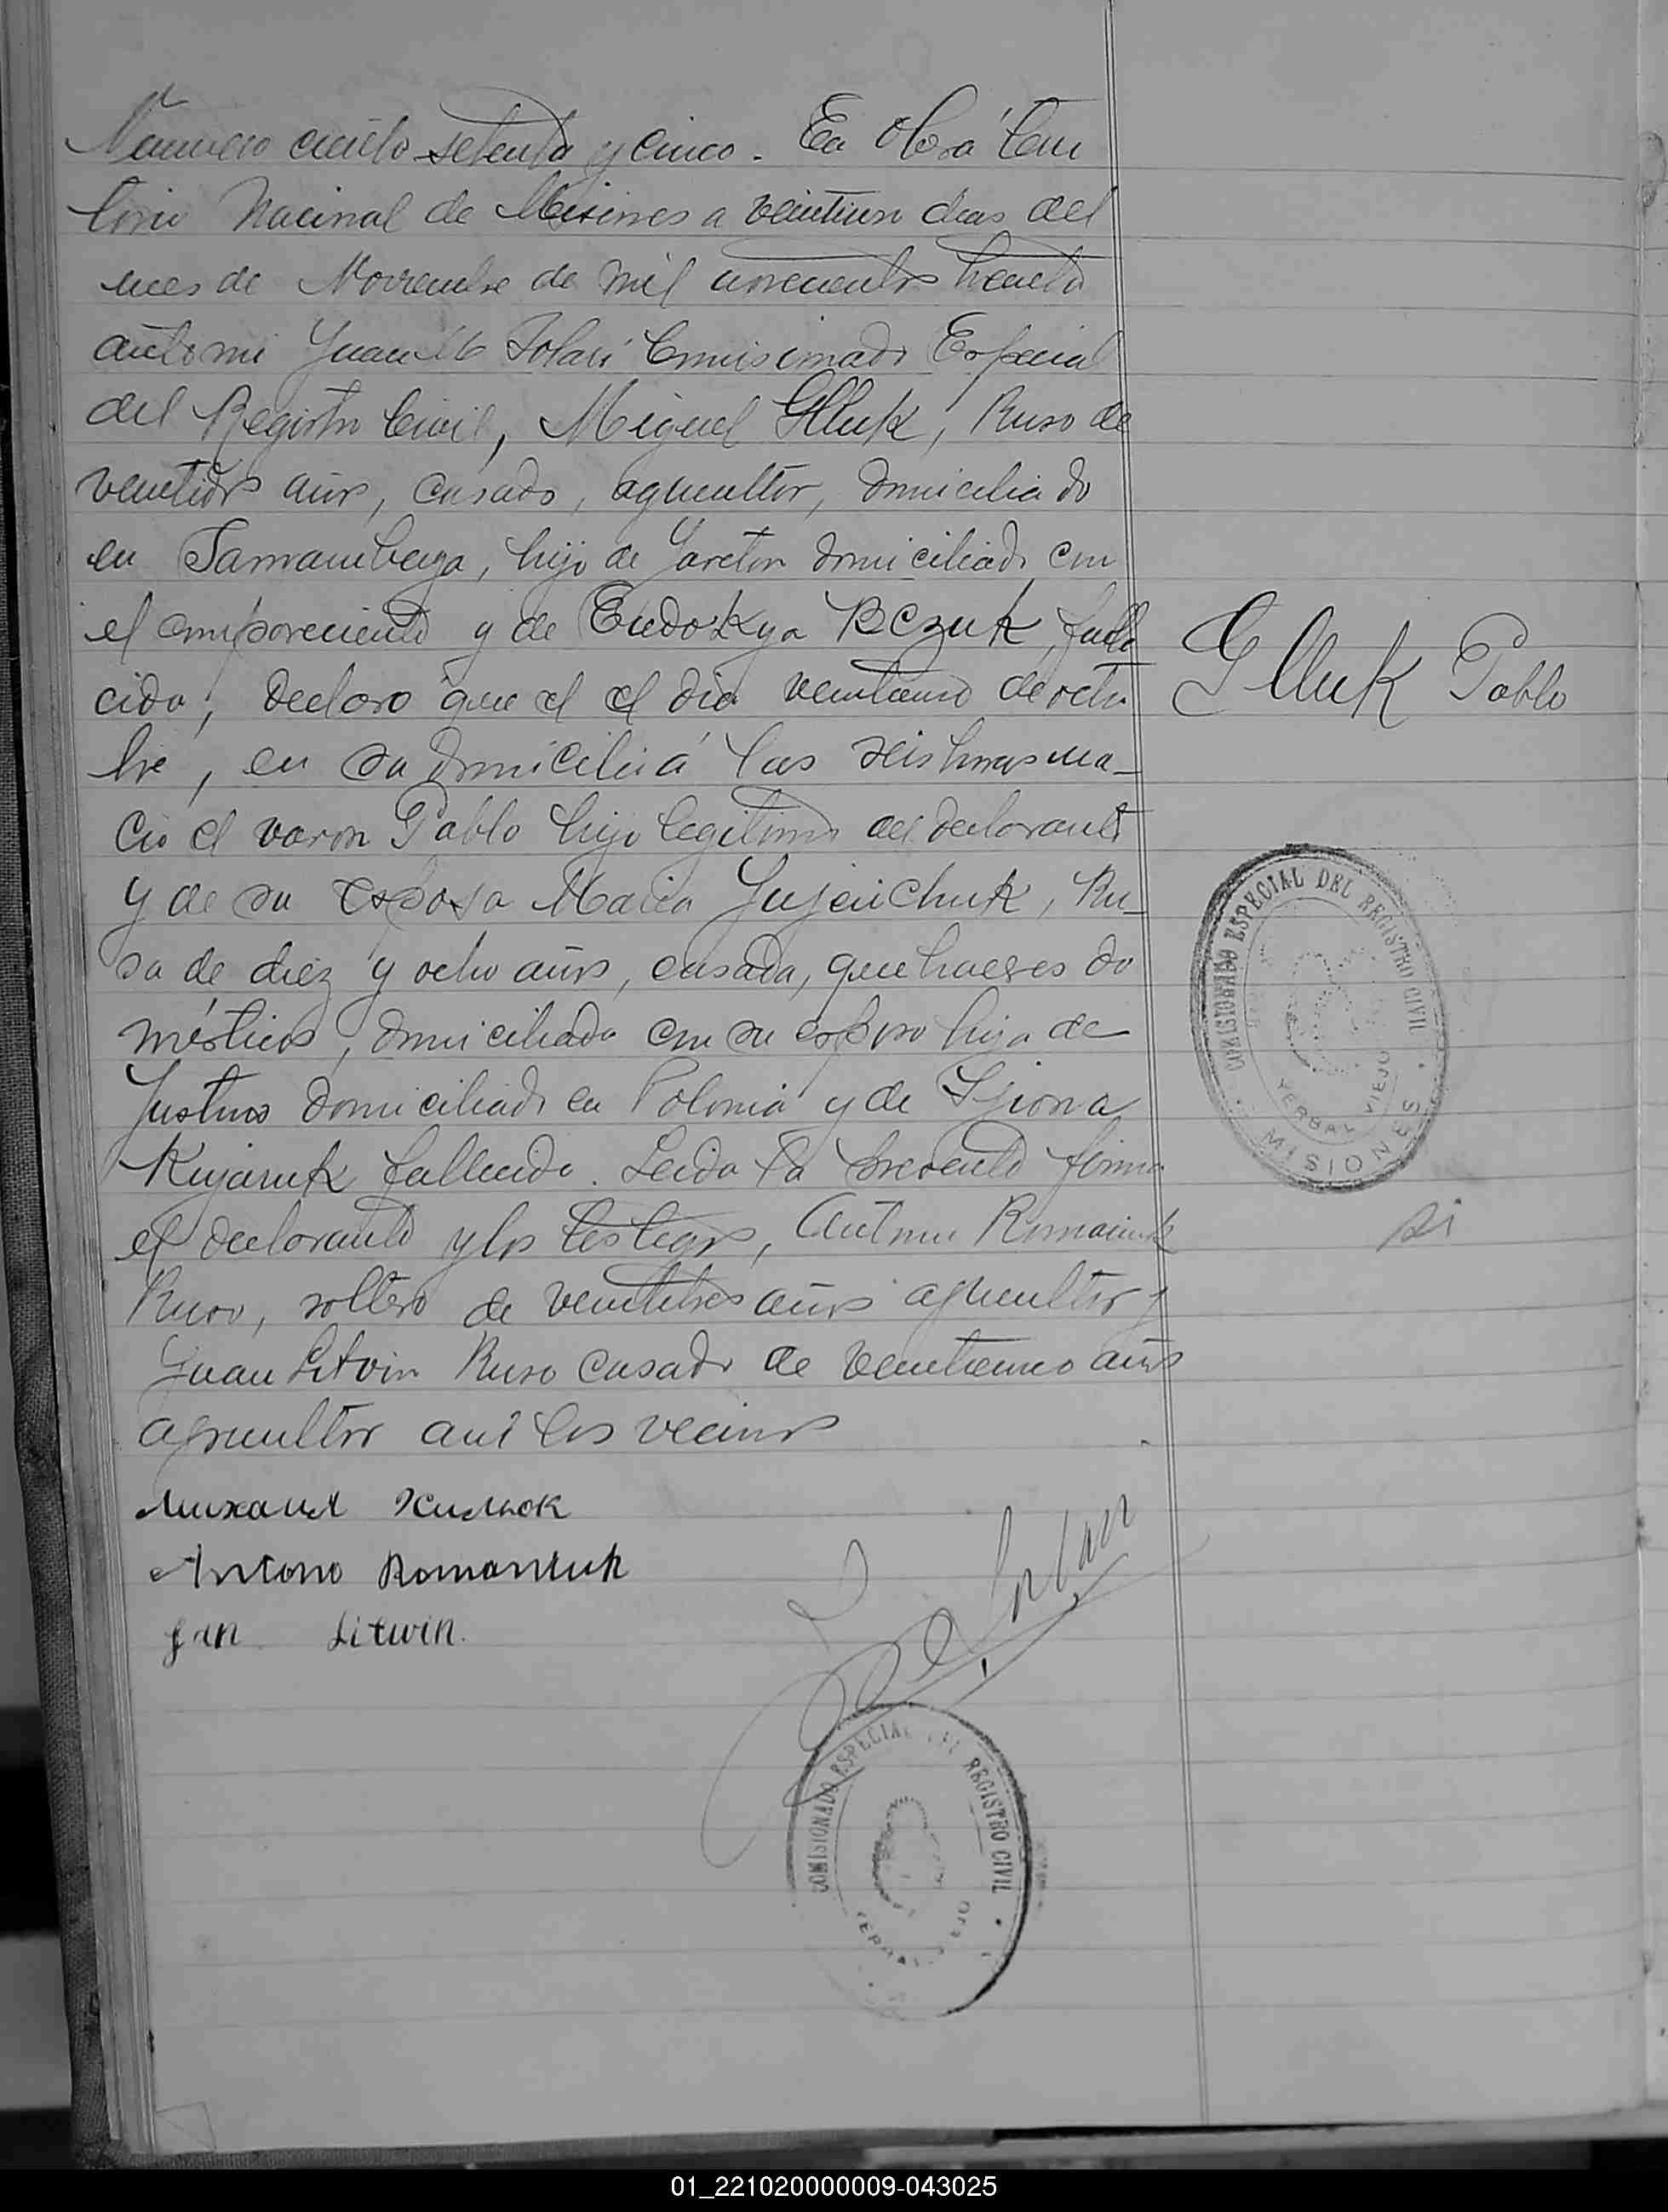 Numero ciento setenta y cinco. En Oberá Terri
torio Nacional de Misiones a veintiun dias del
mes de Noviembre de mil novecientos treinta
ante mi Juan Solari Comisionado Especial
del Registro Civil, Miguel Glluk, Ruso de
veintidos años, casado, agricultor, domiciliado
en Samambaya, hijo de domiciliado con
el compareciente y de Eudokya falle
cida, declaro que el el dia de octu
bre, en su domicilio á las seis horas na-
cio el varon Pablo hijo legitimo del declarante
y de su esposa Maria Jujeichuk, Ru-
sa de diez y ocho años, casada, quehaceres do
mesticos, domiciliada con su esposo hija de
Justino domiciliado en Polonia y de
Kujaruk fallecida. Leida la presente firma
el declarante y los testigos, Romaiuk
Ruso, soltero de veintitres años agricultor y
Juan Litvin Ruso casado de años
agricultor ambos vecinos
Михаил Жилюк
Antono Romaniuk
Jan Litwin.
Solari
Glluk Pablo
COMISIONADO ESPECIAL DEL REGISTRO CIVIL
YERBAL VIEJO
MISIONES
si
COMISIONADO ESPECIAL DEL REGISTRO CIVIL
01_221020000009-043025